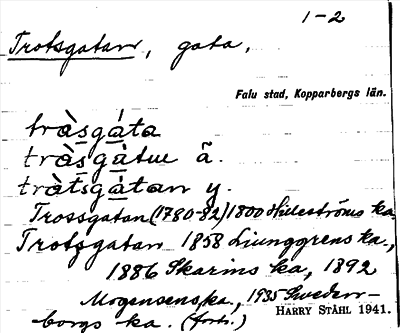 1-2
Trotsgatan, gata,
Falu stad, Kopparbergs län.
tràsgáta
tràsgàtuı ã.
tràtsgàtan y.
Trossgatan (1780-82) 1800 Hüleströms ka,
Trotzgatan 1858 Ljunggrens ka.,
1886 Skarins ka, 1892
Mogensens ka., 1935 Sweden-
borgs ka. (forts.)
HARRY STÅHL 1941.